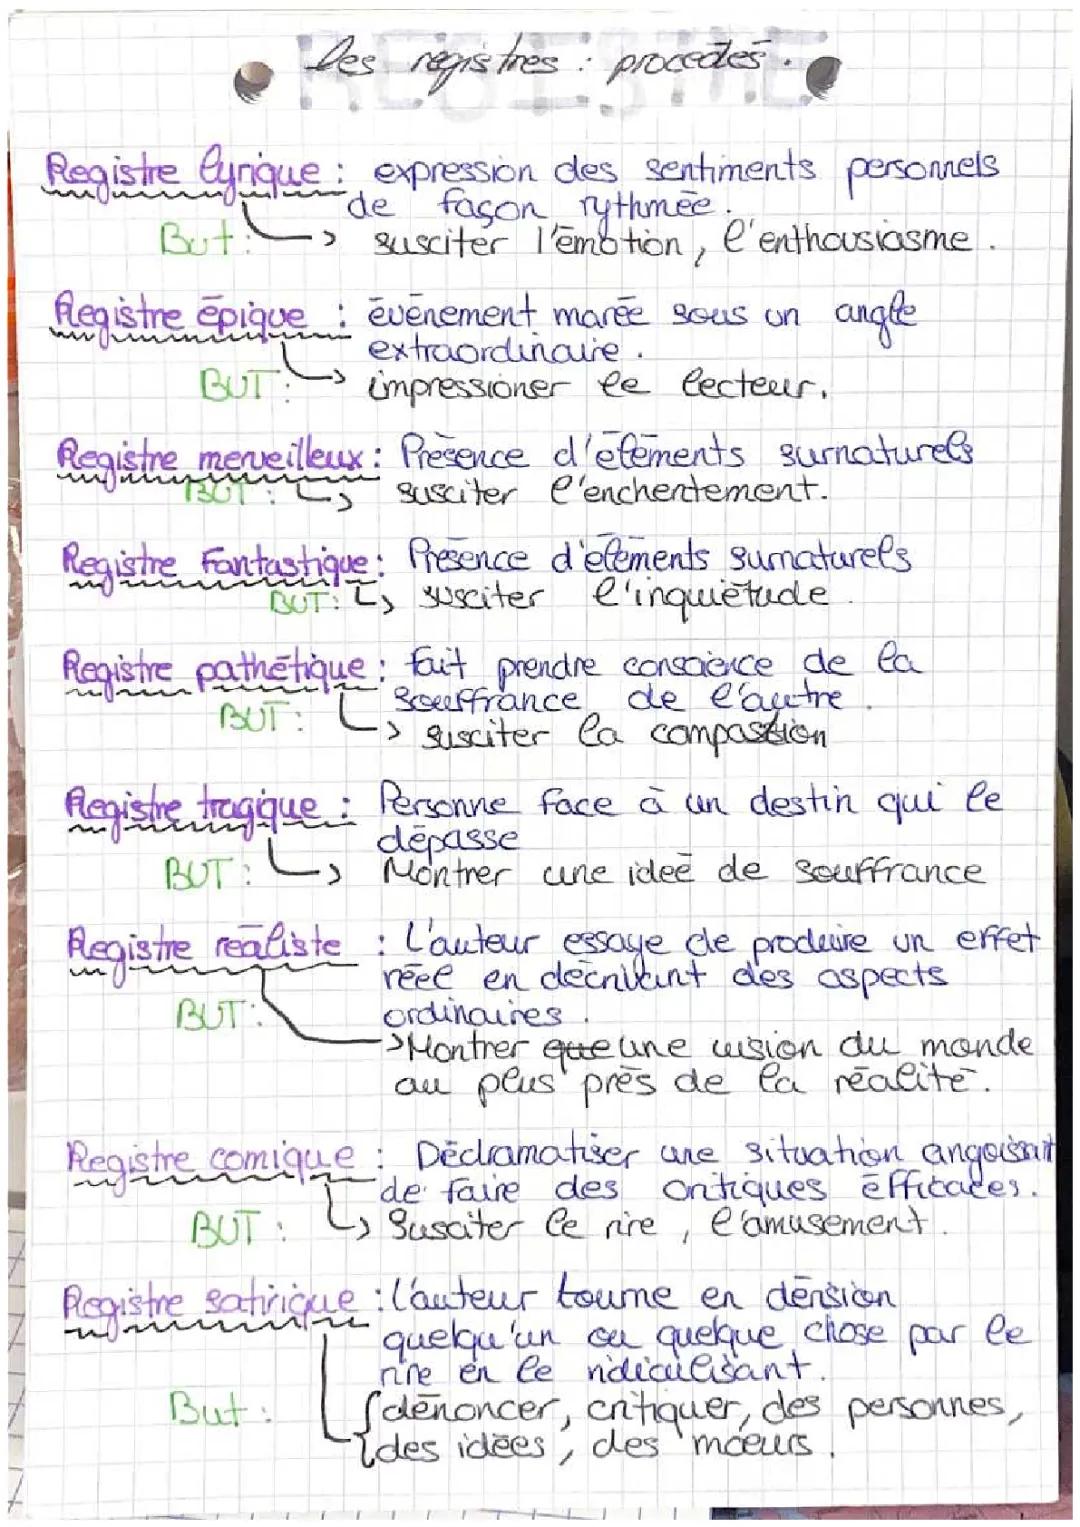 Les registres : procédés.
Registre lyrique : expression des sentiments personnels
de façon rythmée.
But : -> susciter l'émotion, l'enthousiasme.
Registre épique : évènement marée sous un angle
extraordinaire.
BUT : -> impressioner le lecteur.
Registre merveilleux : Présence d'éléments surnaturels
BUT : -> susciter l'enchentement.
Registre Fantastique : Présence d'éléments surnaturels
BUT : -> susciter l'inquiétude.
Registre pathétique : fait prendre conscience de la
souffrance de l'autre.
BUT : -> susciter la compassion
Registre tragique : Personne face à un destin qui le
dépasse
BUT : -> Montrer une ideé de souffrance
Registre réaliste : L'auteur essaye de produire un effet
réel en décrivant des aspects
ordinaires.
BUT : -> Montrer que une vision du monde
au plus près de la réalité.
Registre comique : Dédramatiser une situation angoissant
de faire des critiques efficaces.
BUT : -> Susciter le rire, l'amusement.
Registre satirique : l'auteur tourne en dérision
quelqu'un ou quelque chose par le
rire en le ridiculisant.
But : dénoncer, critiquer, des personnes,
des idées, des moeurs.